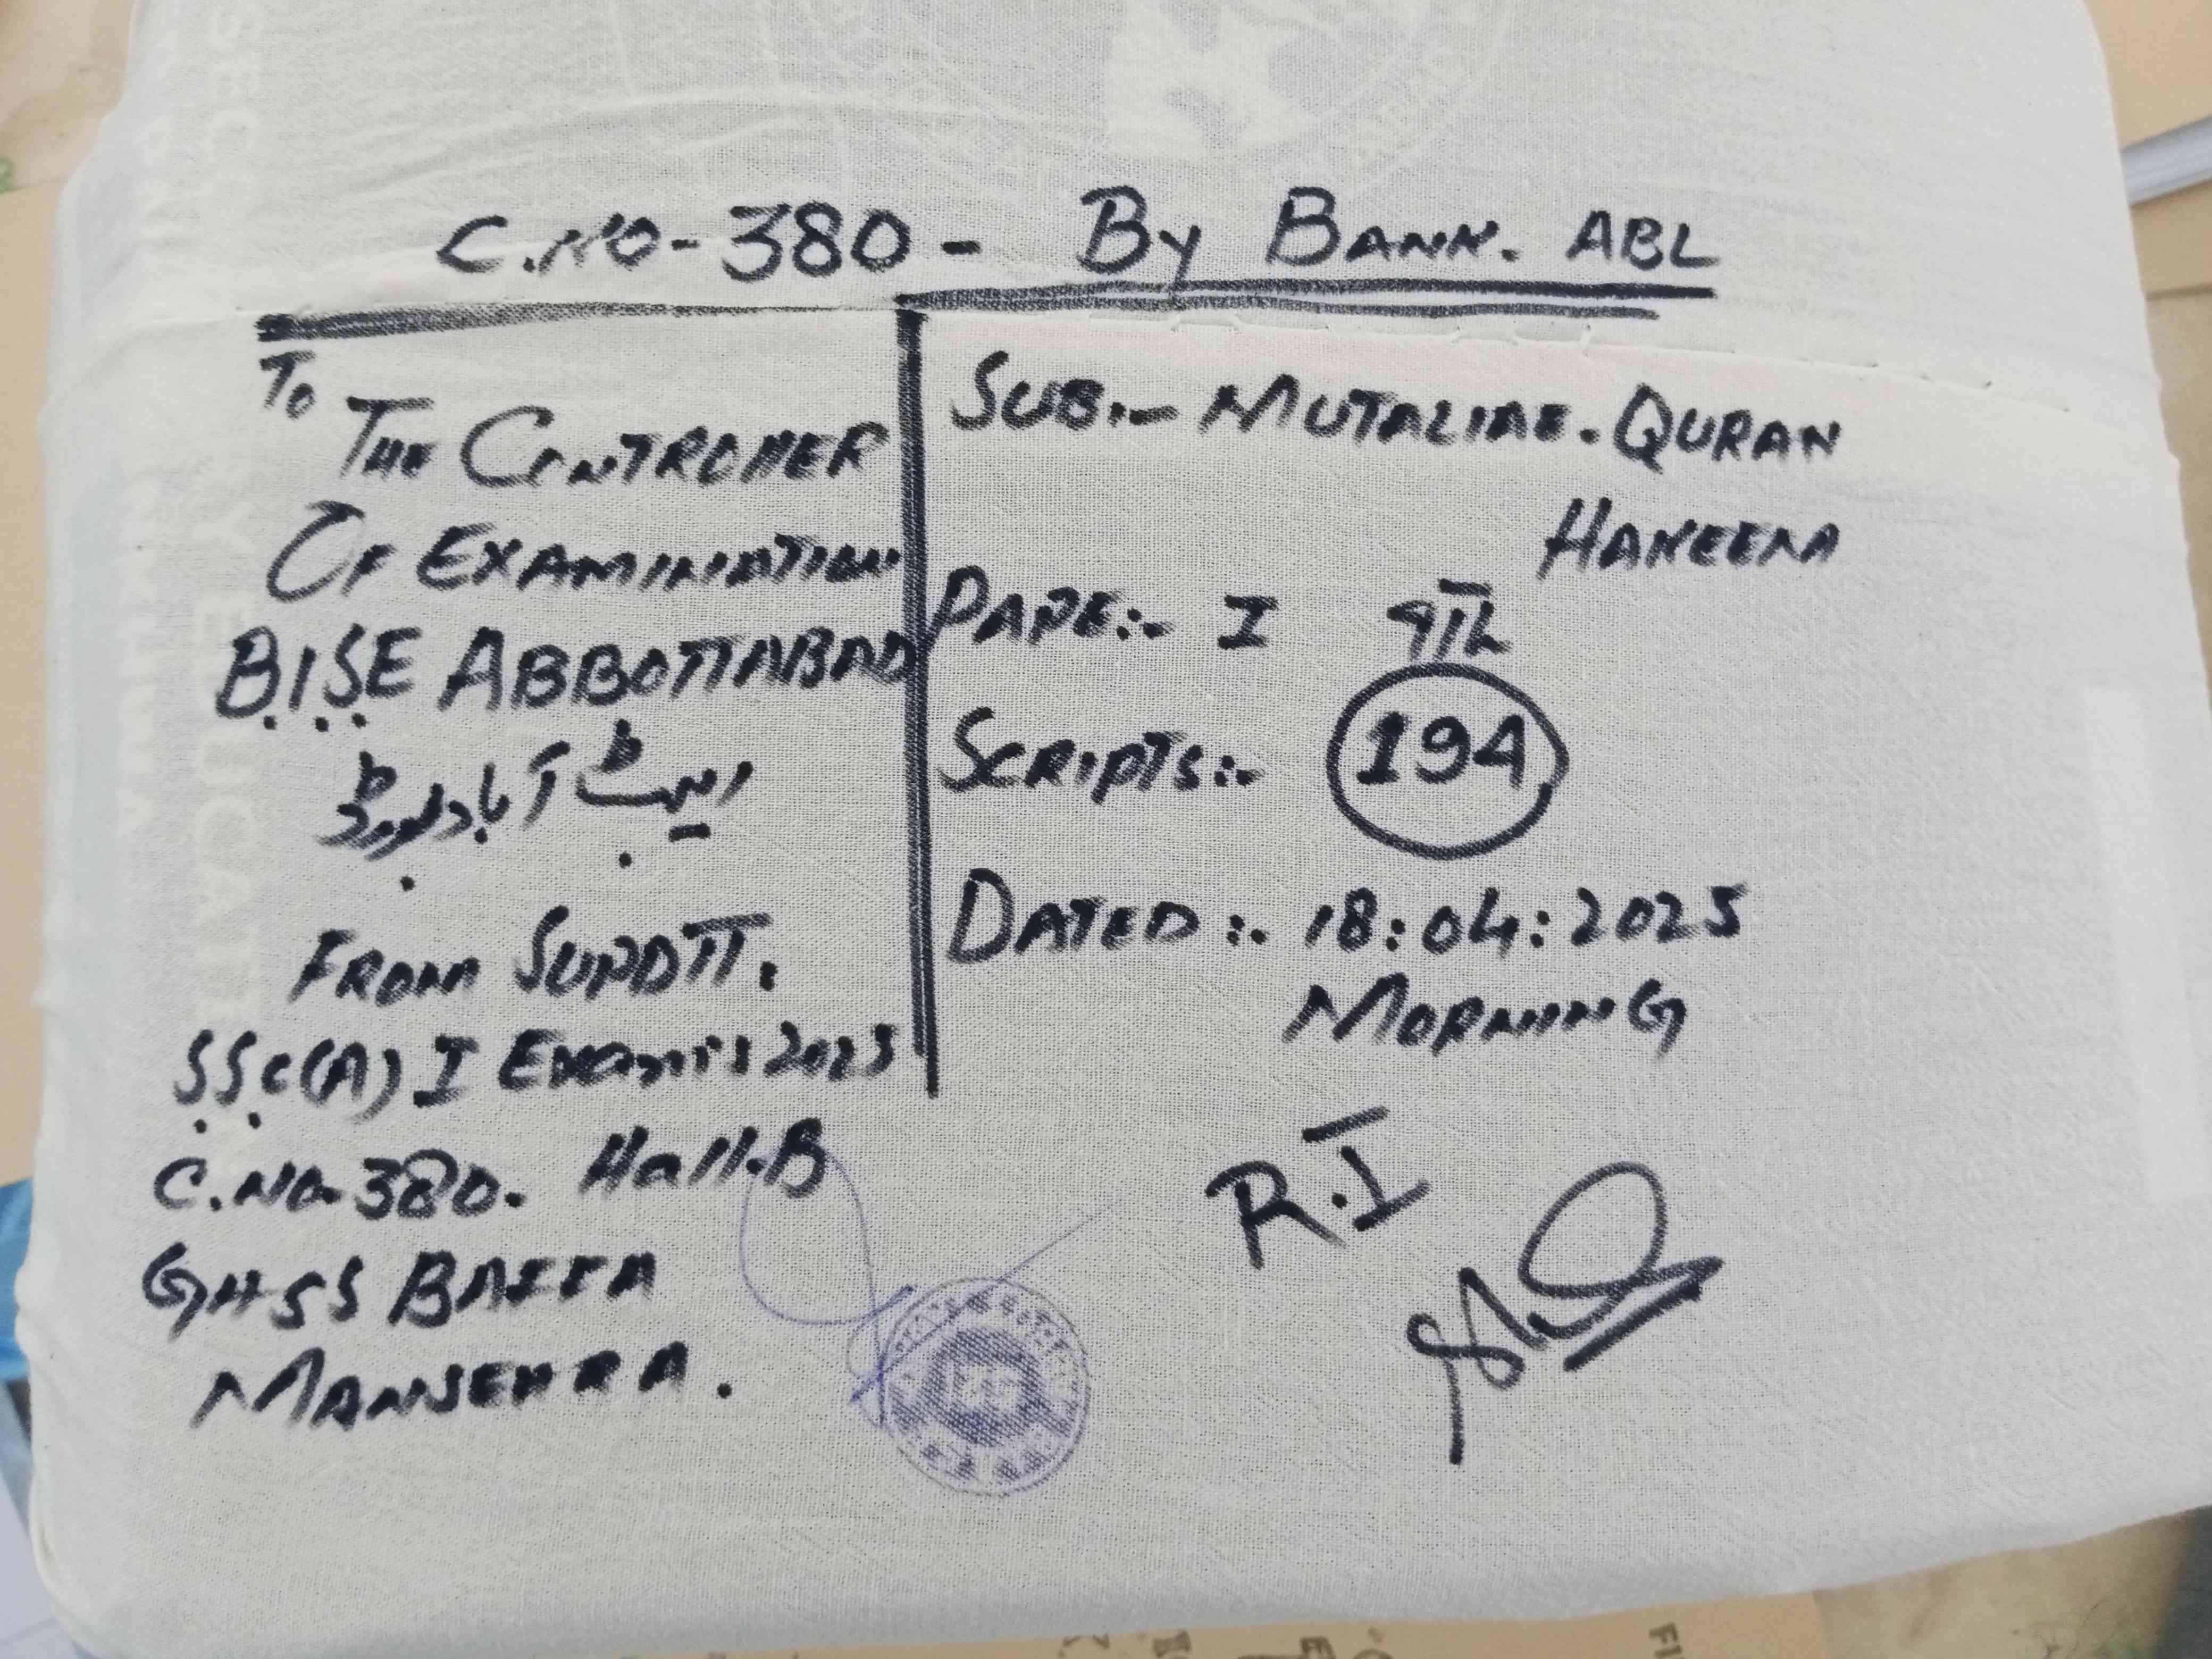 C.NO-380- By BANK. ABL
To
THE CONTROLLER
OF EXAMINATION
B.I.S.E ABBOTTABAD
ایبٹ آباد بورڈ
FROM SUPDTT.
S.S.C(A) I EXAMS 2025
C.NO-380. Hall-B
GHSS BAFFA
MANSEHRA.
SUB:- MUTALIAE. QURAN
HAKEEM
PAPE:- I 9TH
SCRIPTS:- 194
DATED:- 18:04:2025
MORNING
R.I